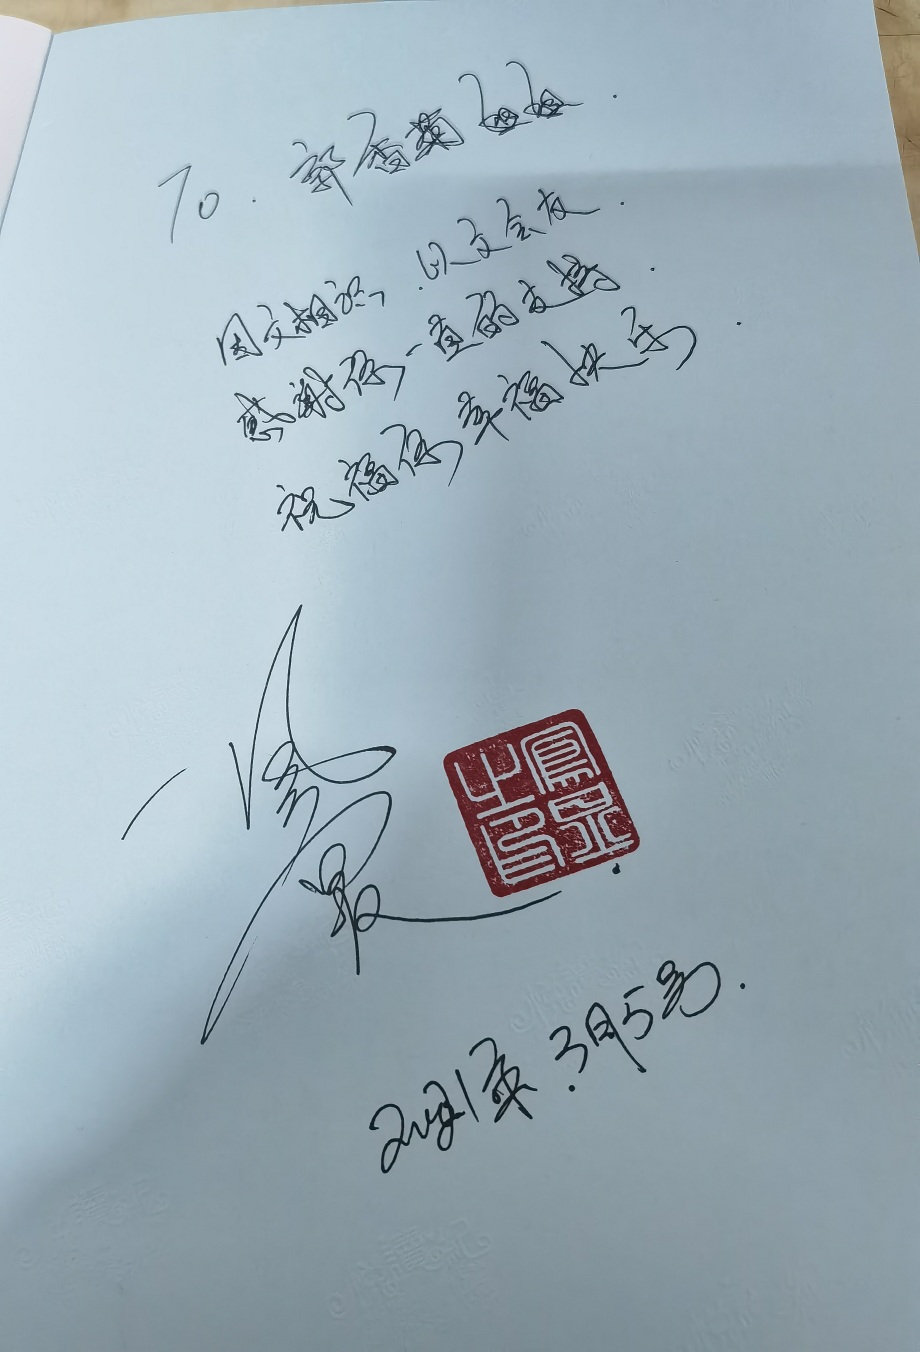 To. 郭香菊姐姐.
因文相识,以文会友.
感谢你一直的支持.
祝福你幸福快乐.
2021年.3月5号.